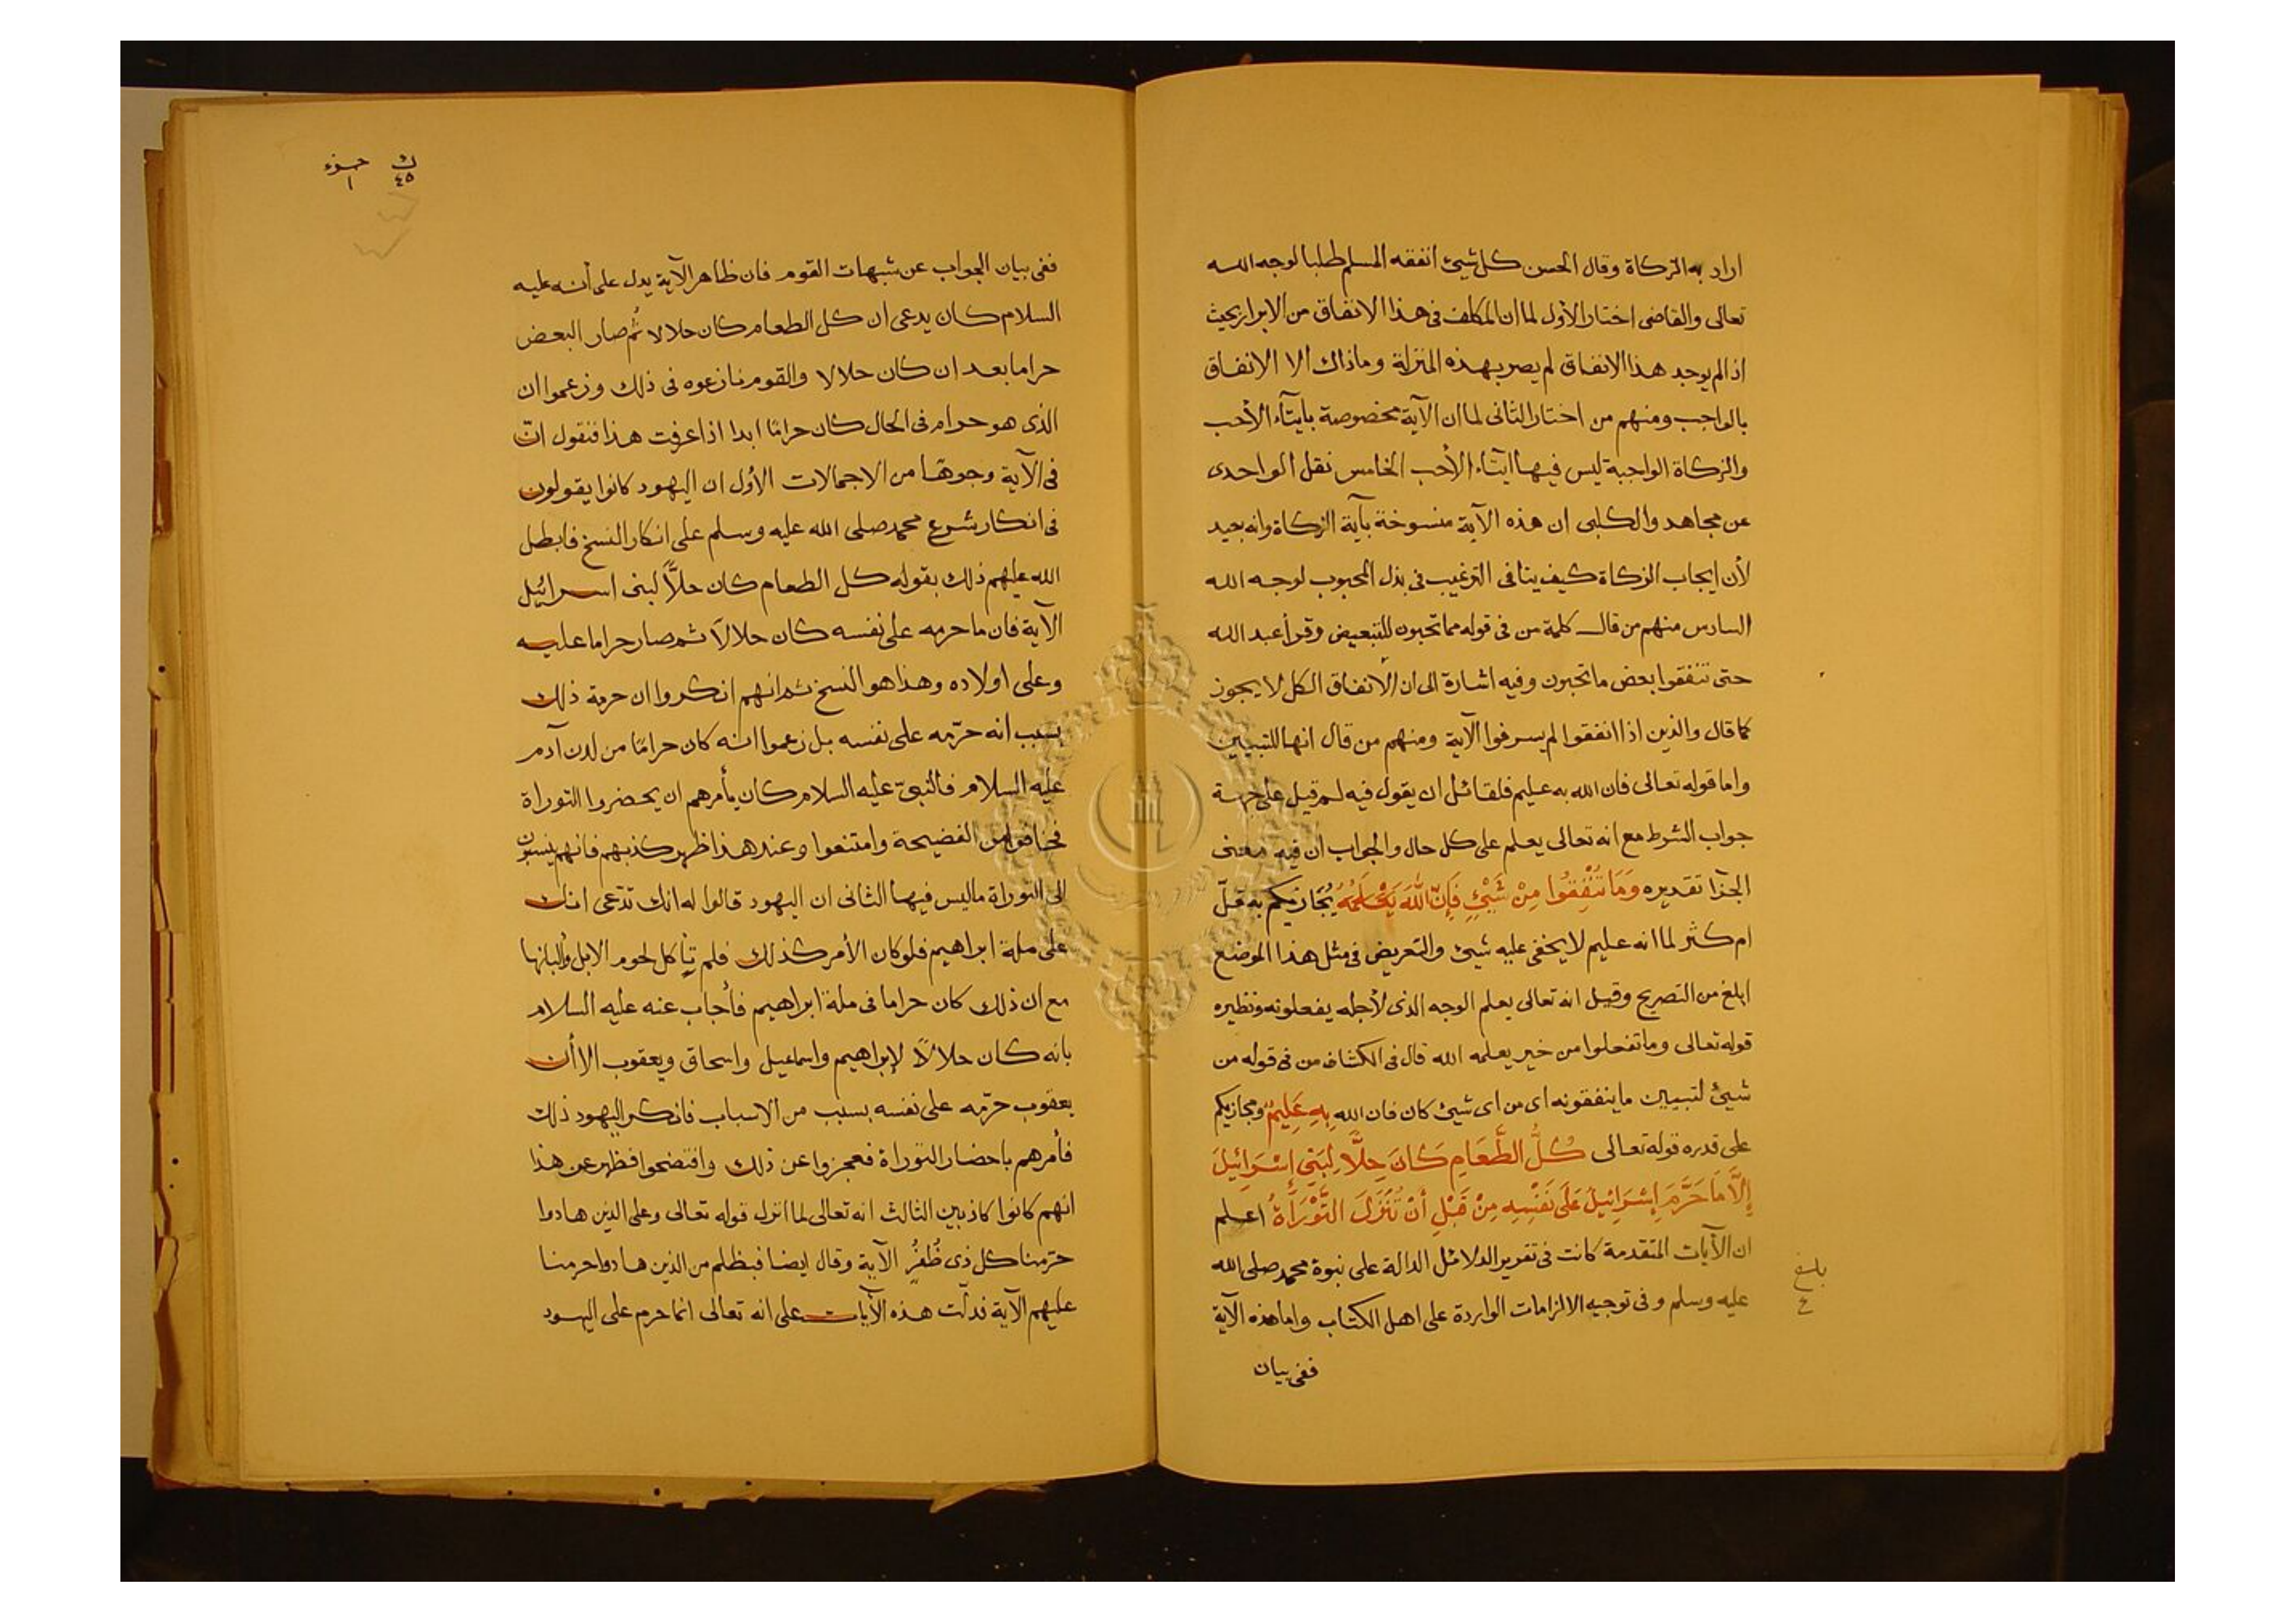 اراد به الزكاة وقال الحسن كل شيئ انفقه المسلم طلبا لوجه الله
تعالى والقاضى اختار الأول لما ان المكلف فى هذا الانفاق من الابرار بحيث
اذا لم يوجد هذا الانفاق لم يصر بهذه المنزلة وماذاك الا الانفاق
بالواجب ومنهم من اختار الثانى لما ان الآية مخصوصة بايتآء الأحب
والزكاة الواجبة ليس فيها ايتاء الأحب الخامس نقل الواحدى
عن مجاهد والكلبى ان هذه الآية منسوخة بآية الزكاة وانه بعيد
لأن ايجاب الزكاة كيف ينافى الترغيب فى بذل المحبوب لوجه الله
السادس منهم من قال كلمة من فى قوله مما تحبون للتبعيض وقرأ عبد الله
حتى تنفقوا بعض ما تحبون وفيه اشارة الى ان الانفاق الكل لا يجوز
كما قال والذين اذا انفقوا لم يسرفوا الآية ومنهم من قال انها للتبيين
واما قوله تعالى فان الله به عليم فلقائل ان يقول فيه لم قيل على جهة
جواب الشرط مع انه تعالى يعلم على كل حال والجواب ان فيه معنى
الجزا تقديره وَمَا تُنْفِقُوا مِنْ شَيْئٍ فَإِنَّ اللّهَ يَعْلَمُهُ يُجَازيكم به قلّ
ام كثر لما انه عليم لا يخفى عليه شيئ والتعريض فى مثل هذا الموضع
ابلغ من التصريح وقيل انه تعالى يعلم الوجه الذى لأجله يفعلونه ونظيره
قوله تعالى وما تفعلوا من خير يعلمه الله قال فى الكشاف من فى قوله من
شيئ لتبيين ما ينفقونه اى من اى شيئ كان فان الله بِهِ عَلِيمٌ ومجازيكم
على قدره قوله تعالى كُلُّ الطَّعَامِ كَانَ حِلًّا لِبَنِي إِسْرَائِيلَ
إِلَّا مَا حَرَّمَ إِسْرَائِيلُ عَلَى نَفْسِهِ مِنْ قَبْلِ أَنْ تُنَزَّلَ التَّوْرَاةُ اعلم
ان الآيات المتقدمة كانت فى تقرير الدلائل الدالة على نبوة محمد صلى الله
عليه وسلم وفى توجيه الالزامات الواردة على اهل الكتاب واما هذه الآية
ففى بيان
بلغ
ع
ك ٤٥ جزء ١
ففى بيان الجواب عن شبهات القوم فان ظاهر الآية يدل على أنه عليه
السلام كان يدعى ان كل الطعام كان حلالا ثُم صار البعض
حراما بعد ان كان حلالا والقوم نازعوه فى ذلك وزعموا ان
الذى هو حرام فى الحال كان حرامًا ابدا اذا عرفت هذا فنقول انّ
فى الآية وجوها من الاجمالات الأول ان اليهود كانوا يقولون
فى انكار شرع محمد صلى الله عليه وسلم على انكار النسخ فابطل
الله عليهم ذلك بقوله كل الطعام كان حلاًّ لبنى اسرائيل
الآية فان ما حرمه على نفسه كان حلالاً ثم صار حراما عليه
وعلى اولاده وهذا هو النسخ ثم انهم انكروا ان حرمة ذلك
بسبب انه حرّمه على نفسه بل زعموا انه كان حرامًا من لدن آدم
عليه السلام فالنبىّ عليه السلام كان يأمرهم ان يحضروا التوراة
فخافوا من الفضيحة وامتنعوا وعند هذا ظهر كذبهم فانهم ينسبون
الى التوراة ما ليس فيها الثانى ان اليهود قالوا له انك تدّعى انك
على ملة ابراهيم فلو كان الأمر كذلك فلم تأكل لحوم الابل وألبانها
مع ان ذلك كان حراما فى ملة ابراهيم فأجاب عنه عليه السلام
بانه كان حلالاً لإبراهيم واسماعيل واسحاق ويعقوب الا أن
يعقوب حرّمه على نفسه بسبب من الاسباب فانكر اليهود ذلك
فأمرهم باحضار التوراة فعجزوا عن ذلك وافتضحوا فظهر عن هذا
انهم كانوا كاذبين الثالث انه تعالى لما انزل قوله تعالى وعلى الذين هادوا
حرّمنا كل ذى ظُفُرٍ الآية وقال ايضا فبظلم من الذين هادوا حرمنا
عليهم الآية فدلّت هذه الآيات على انه تعالى انما حرم على اليهود